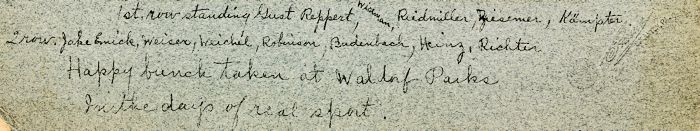 1st. row standing Gust Reppert, Widman, Riedmiller, Ziesemer, Kämpfer.
2 row. Jake Emick, Weiser, Weichel, Robinson, Badenbach, Heinz, Richter.
Happy bunch taken at Waldorf Parks
In the days of real sport.